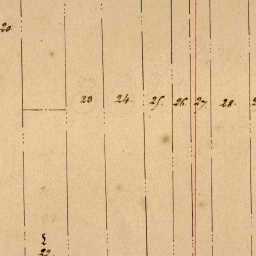 20
23 24. 25. 26. 27. 28.
22